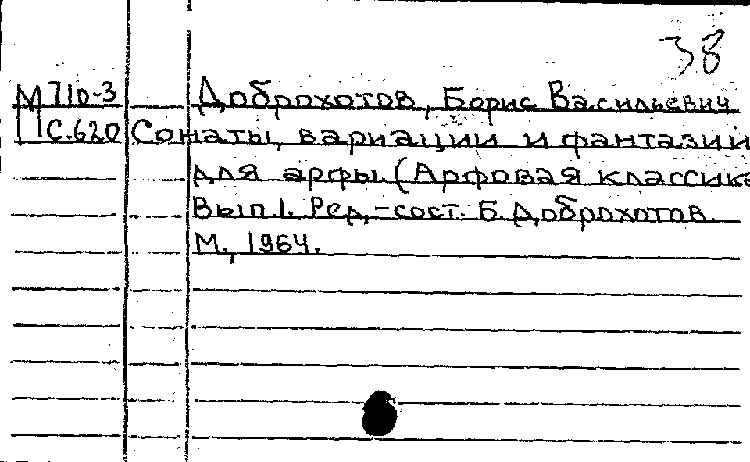 38
М 710-3 Доброхотов, Борис Васильевич
П С.620 Сонаты, вариации и фантазии
для арфы. (Арфовая классика
Вып.1. Ред.-сост. Б. Доброхотов.
М., 1964.